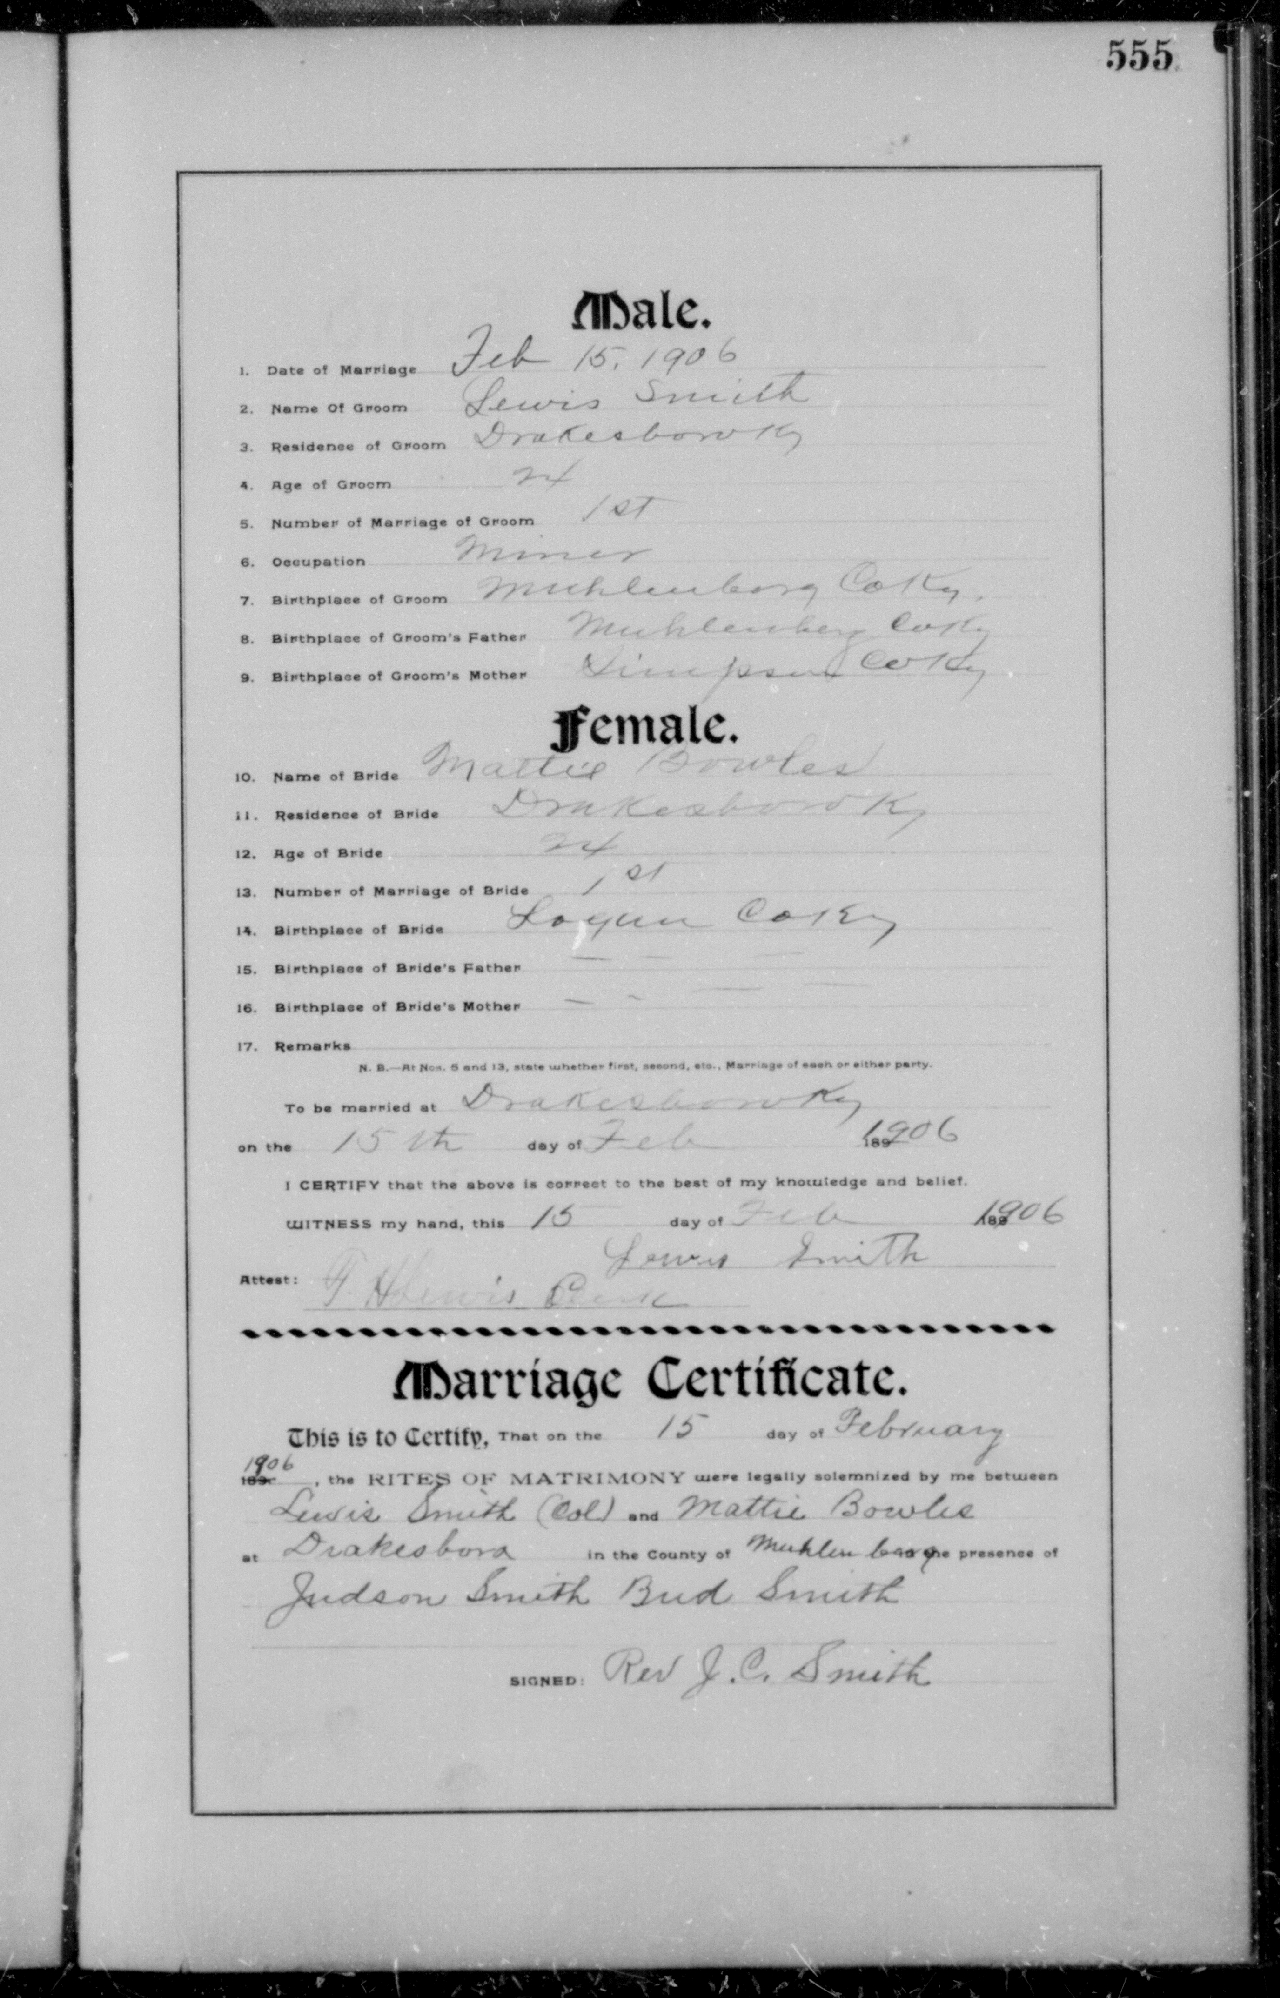 555
Male.
1. Date of Marriage Feb 15, 1906
2. Name Of Groom Lewis Smith
3. Residence of Groom Drakesboro Ky
4. Age of Groom 24
5. Number of Marriage of Groom 1st
6. Occupation Miner
7. Birthplace of Groom Muhlenberg Co Ky.
8. Birthplace of Groom's Father Muhlenberg Co Ky
9. Birthplace of Groom's Mother Simpson Co Ky
Female.
10. Name of Bride Mattie Bowles
11. Residence of Bride Drakesboro Ky
12. Age of Bride 24
13. Number of Marriage of Bride 1st
14. Birthplace of Bride Logan Co Ky
15. Birthplace of Bride's Father — — —
16. Birthplace of Bride's Mother — - — —
17. Remarks
N. B.—At Nos. 5 and 13, state whether first, second, etc., Marriage of each or either party.
To be married at Drakesboro Ky
on the 15th day of Feb 1906
I CERTIFY that the above is correct to the best of my knowledge and belief.
WITNESS my hand, this 15 day of Feb 1906
Lewis Smith
Attest: Lewis Clerk
Marriage Certificate.
This is to Certify, That on the 15 day of February
1906, the RITES OF MATRIMONY were legally solemnized by me between
Lewis Smith (Col) and Mattie Bowles
at Drakesboro in the County of Muhlenberg the presence of
Judson Smith Bud Smith
SIGNED: Rev J. C. Smith